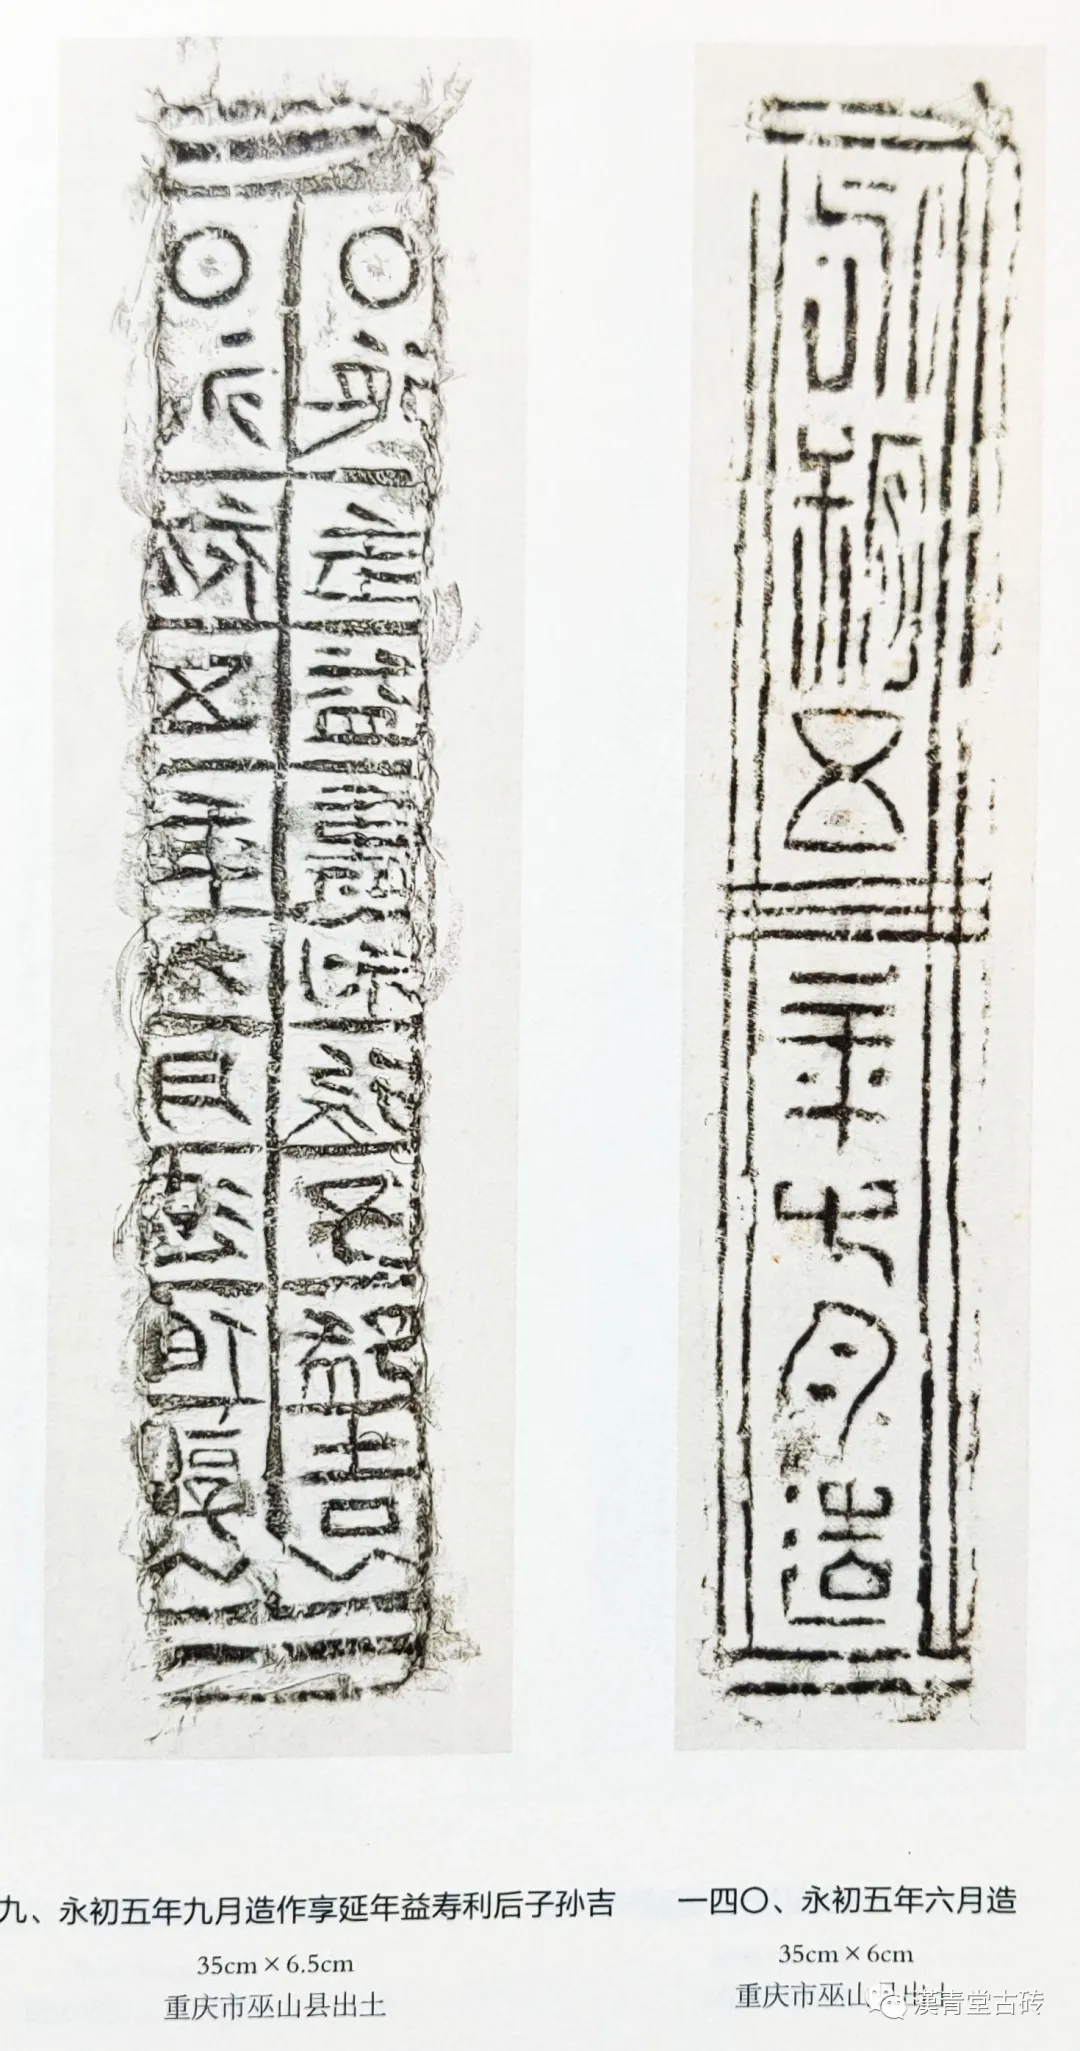 永初五年九月造作享
吉
永初五年
月造
九、永初五年九月造作享延年益寿利后子孙吉
35cm×6.5cm
重庆市巫山县出土
一四〇、永初五年六月造
35cm×6cm
重庆市巫山县出土
漢青堂古砖